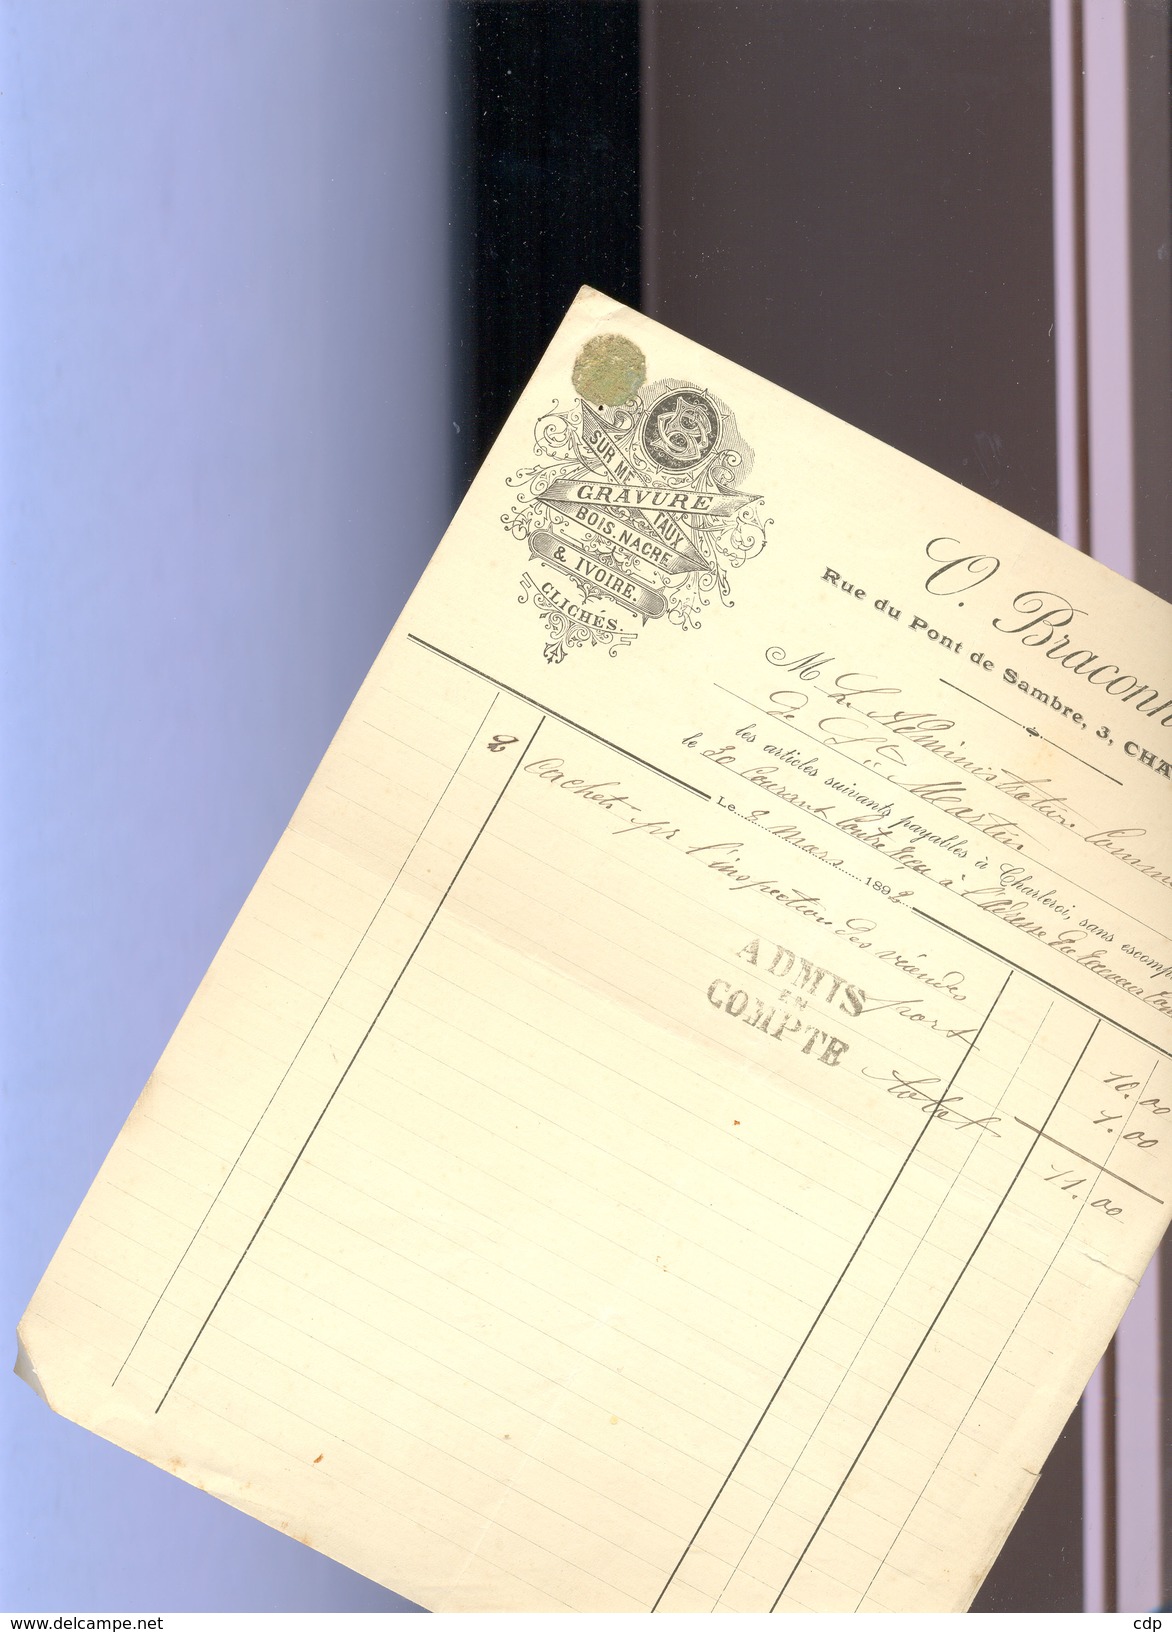 SUR METAUX
GRAVURE
BOIS. NACRE
& IVOIRE.
CLICHÉS.
O. Braconn
Rue du Pont de Sambre, 3, CHA
M Administration Comm
de Martin
les articles suivants payables à Charleroi, sans escomp
le 30 Courant Contre reçu à l'adresse du
Le 2 Mars 1892
2 Cachets pr l'inspection des viandes 10.00
port 1.00
ADMIS
EN
COMPTE
Total 11.00
www.delcampe.net
cdp